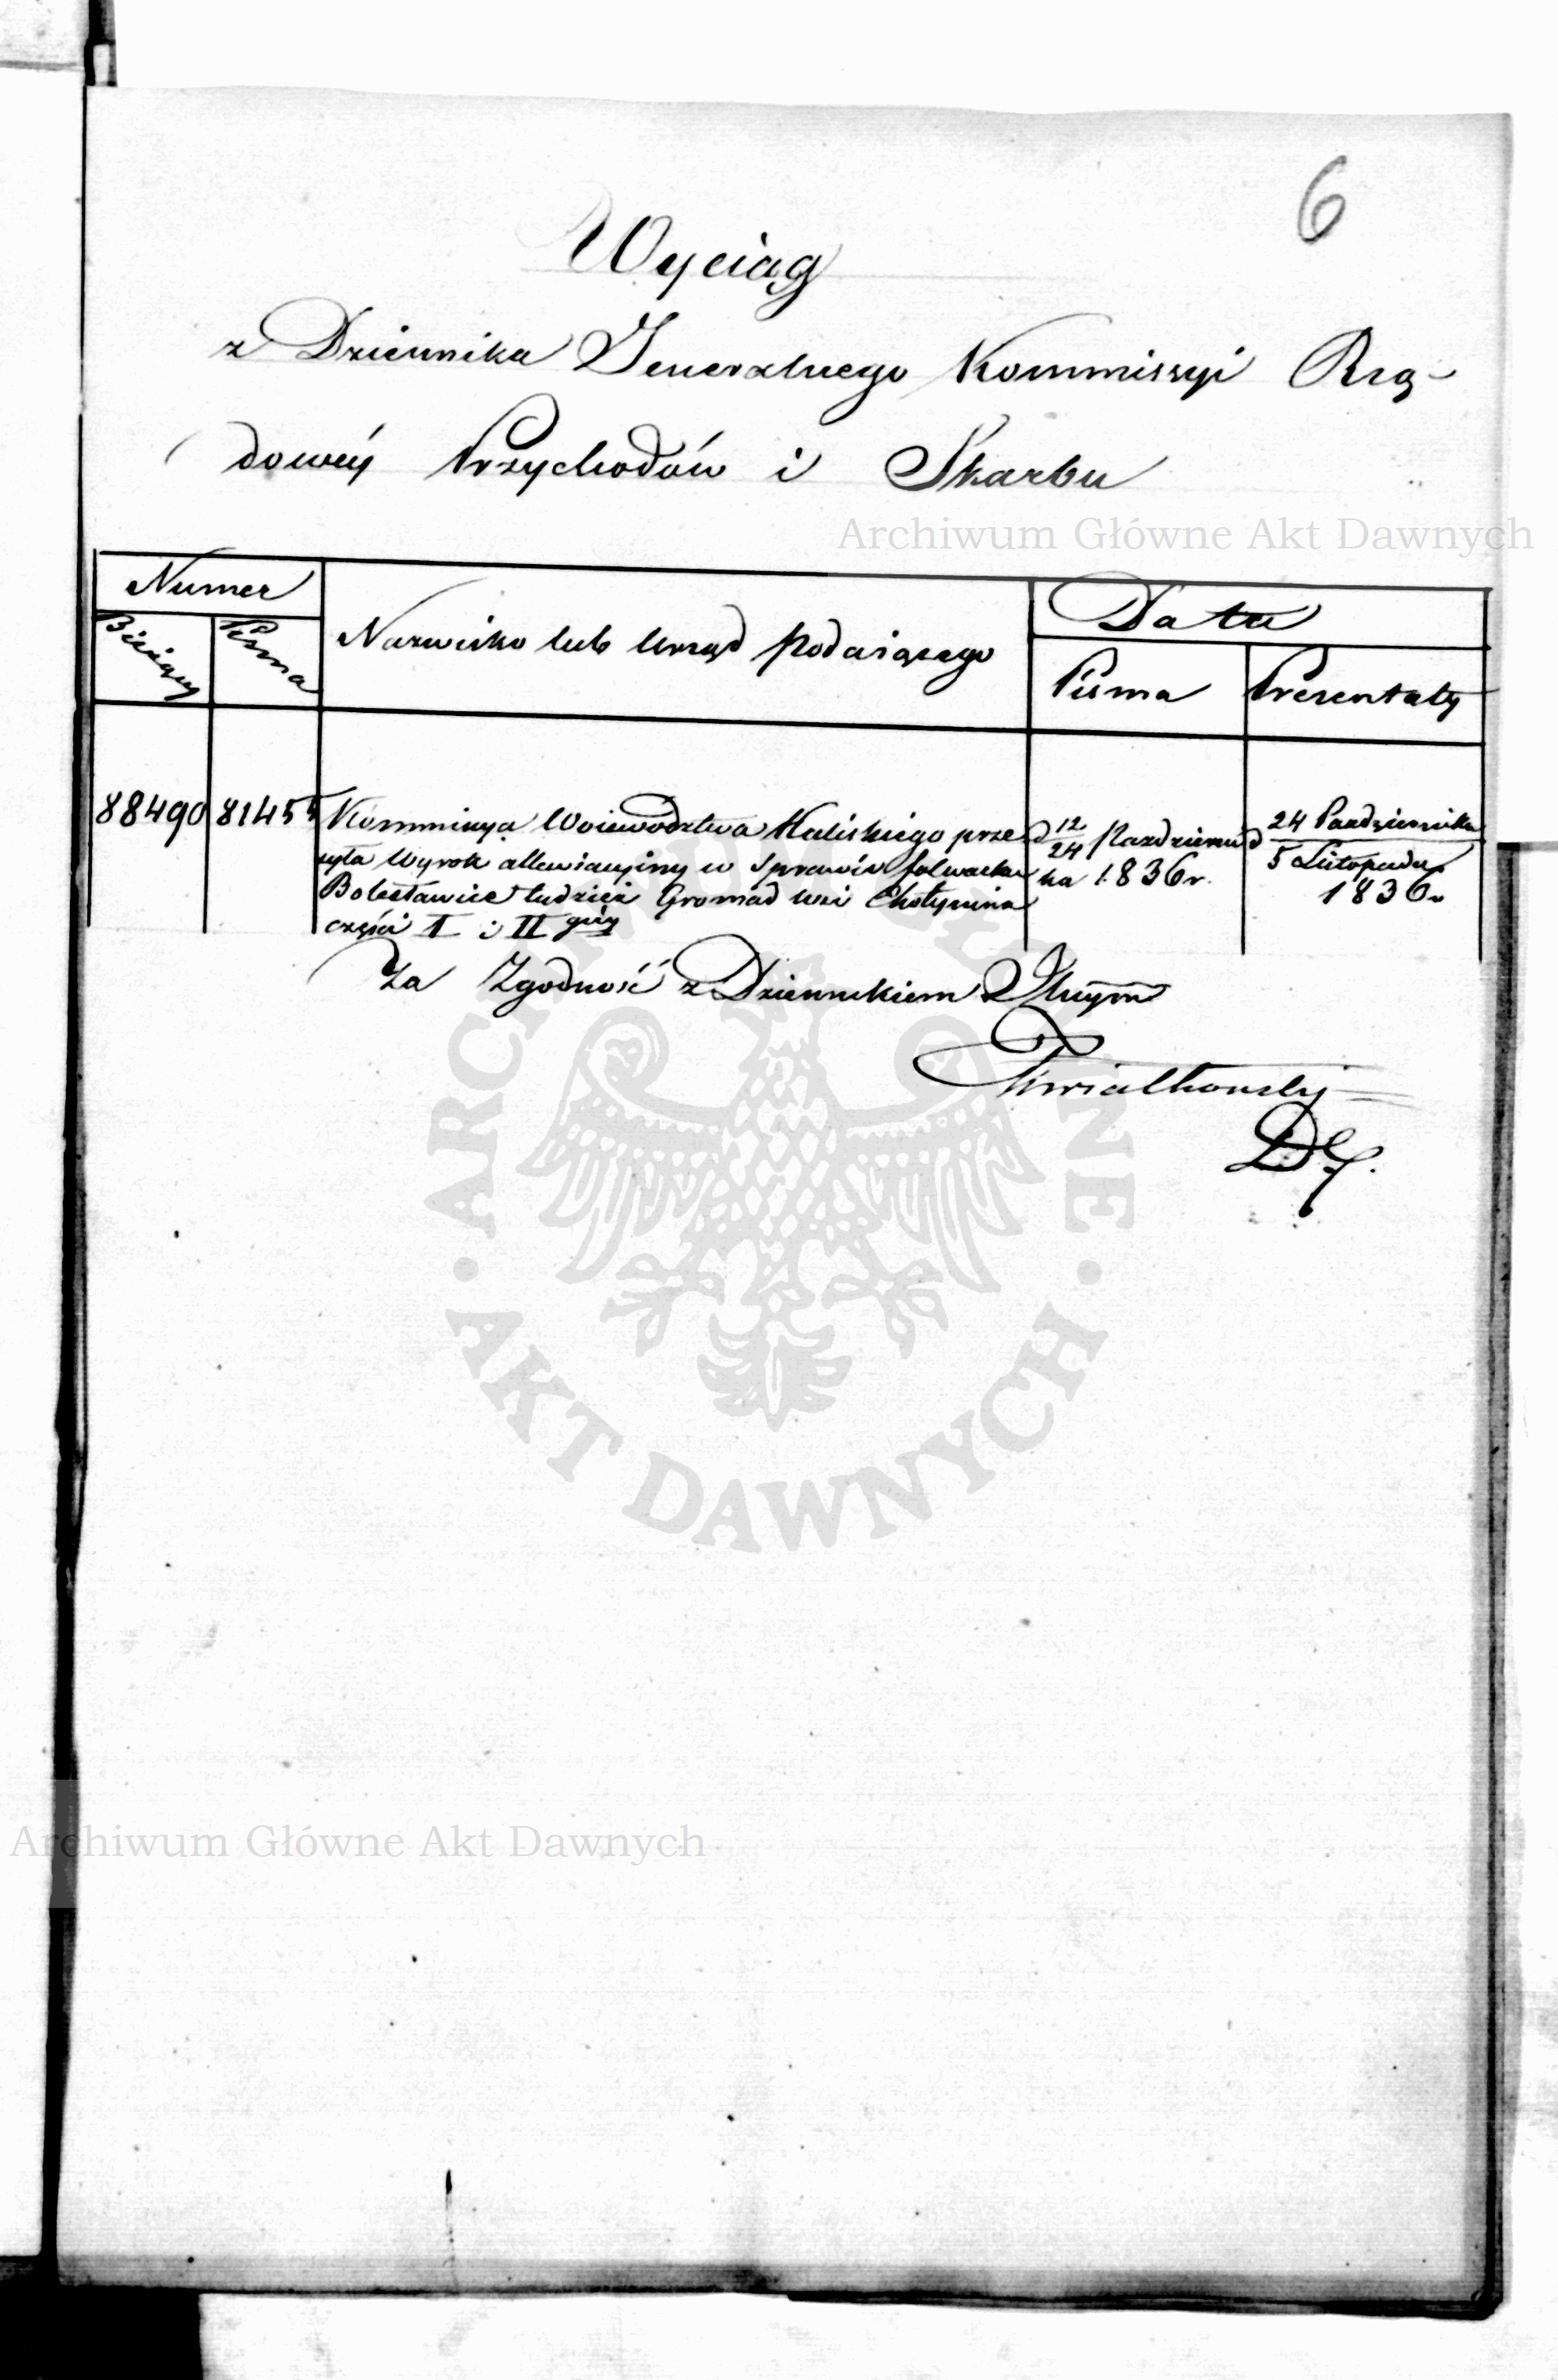 6
Wyciąg
z Dziennika Jeneralnego Kommissyi Rzą-
dowéy Przychodów i Skarbu
Archiwum Główne Akt Dawnych
Numer
Data
Bieżący
Pisma
Nazwisko lub Urząd Podaiącego
Pisma
Prezentaty
88490
81455
Kommissya Woiewództwa Kaliskiego prze
syła Wyrok allewiacyjny w Sprawie folwarku
Bolesławice tudzież Gromad wsi Chotynina
części I i II giéy
d 12/24 Październi
ka 1836 r.
d 24 Października
5 Listopada
1836 r
Za Zgodność z Dziennikiem
Kwiatkowski
ARCHIWUM GŁÓWNE AKT DAWNYCH
Archiwum Główne Akt Dawnych